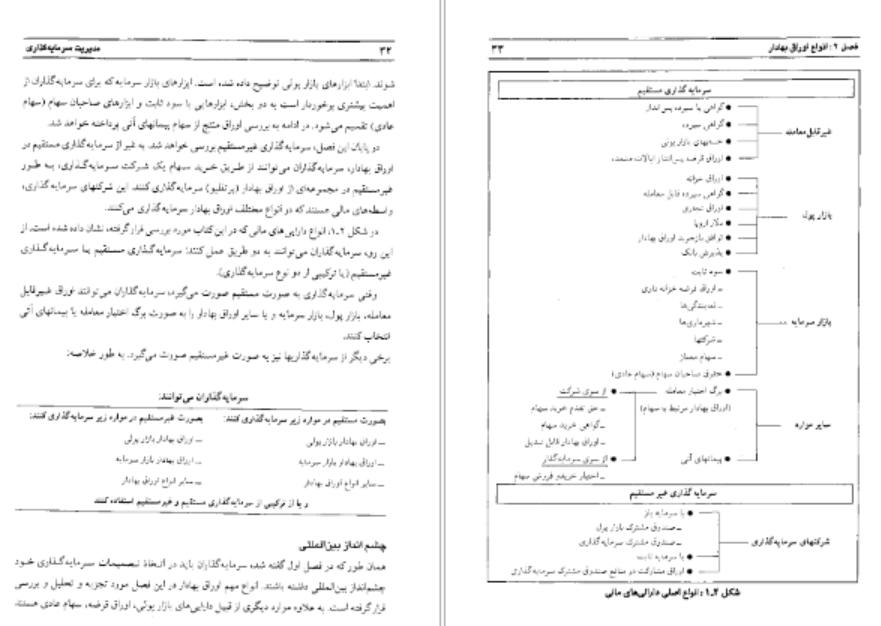 ۳۲
مدیریت سرمایه‌گذاری
شوند. ابتدا ابزارهای بازار پولی توضیح داده شده است. ابزارهای بازار سرمایه که برای سرمایه‌گذاران از
اهمیت بیشتری برخوردار است به دو بخش، ابزارهایی با سود ثابت و ابزارهای صاحبان سهام (سهام
عادی) تقسیم می‌شود. در ادامه به بررسی اوراق منتج از سهام پیمانهای آتی پرداخته خواهد شد.
در پایان این فصل، سرمایه‌گذاری غیرمستقیم بررسی خواهد شد. به غیر از سرمایه‌گذاری مستقیم در
اوراق بهادار، سرمایه‌گذاران می‌توانند از طریق خرید سهام یک شرکت سرمایه‌گذاری، به طور
غیرمستقیم در مجموعه‌ای از اوراق بهادار (پرتفلیو) سرمایه‌گذاری کنند. این شرکتهای سرمایه‌گذاری،
واسطه‌های مالی هستند که در انواع مختلف اوراق بهادار سرمایه‌گذاری می‌کنند.
در شکل ۲ـ۱، انواع دارایی‌های مالی که در این کتاب مورد بررسی قرار گرفته، نشان داده شده است. از
این رو، سرمایه‌گذاران می‌توانند به دو طریق عمل کنند: سرمایه‌گذاری مستقیم یا سرمایه‌گذاری
غیرمستقیم (یا ترکیبی از دو نوع سرمایه‌گذاری).
وقتی سرمایه‌گذاری به صورت مستقیم صورت می‌گیرد، سرمایه‌گذاران می‌توانند اوراق غیرقابل
معامله، بازار پول، بازار سرمایه و یا سایر اوراق بهادار را به صورت برگ اختیار معامله یا پیمانهای آتی
انتخاب کنند.
برخی دیگر از سرمایه‌گذاریها نیز به صورت غیرمستقیم صورت می‌گیرد. به طور خلاصه:
سرمایه‌گذاران می‌توانند:
بصورت مستقیم در موارد زیر سرمایه‌گذاری کنند: بصورت غیرمستقیم در موارد زیر سرمایه‌گذاری کنند:
ـ اوراق بهادار بازار پولی ـ اوراق بهادار بازار پولی
ـ اوراق بهادار بازار سرمایه ـ اوراق بهادار بازار سرمایه
ـ سایر انواع اوراق بهادار ـ سایر انواع اوراق بهادار
و یا از ترکیبی از سرمایه‌گذاری مستقیم و غیرمستقیم استفاده کنند
چشم انداز بین‌المللی
همان طور که در فصل اول گفته شد، سرمایه‌گذاران باید در اتخاذ تصمیمات سرمایه‌گذاری خود
چشم‌انداز بین‌المللی داشته باشند. انواع مهم اوراق بهادار در این فصل مورد تجزیه و تحلیل و بررسی
قرار گرفته است. به علاوه موارد دیگری از قبیل دارایی‌های بازار پولی، اوراق قرضه، سهام عادی هستند
فصل ۲: انواع اوراق بهادار
۳۳
سرمایه گذاری مستقیم
غیرقابل معامله
گواهی یا سپرده پس انداز
گواهی سپرده
حسابهای بازار پولی
اوراق قرضه پس‌انداز ایالات متحده
بازار پول
اوراق خزانه
گواهی سپرده قابل معامله
اوراق تجاری
دلار اروپا
توافق بازخرید اوراق بهادار
پذیرش بانک
بازار سرمایه
سود ثابت
ـ اوراق قرضه خزانه داری
ـ نمایندگی‌ها
ـ شهرداری‌ها
ـ شرکتها
ـ سهام ممتاز
حقوق صاحبان سهام (سهام عادی)
سایر موارد
برگ اختیار معامله
(اوراق بهادار مرتبط با سهام)
از سوی شرکت
ـ حق تقدم خرید سهام
ـ گواهی خرید سهام
ـ اوراق بهادار قابل تبدیل
از سوی سرمایه‌گذار
ـ اختیار خرید و فروش سهام
پیمانهای آتی
سرمایه گذاری غیر مستقیم
شرکتهای سرمایه‌گذاری
با سرمایه باز
ـ صندوق مشترک بازار پول
ـ صندوق مشترک سرمایه‌گذاری
با سرمایه ثابت
اوراق مشارکت در منافع صندوق مشترک سرمایه‌گذاری
شکل ۲ـ۱: انواع اصلی دارائی‌های مالی